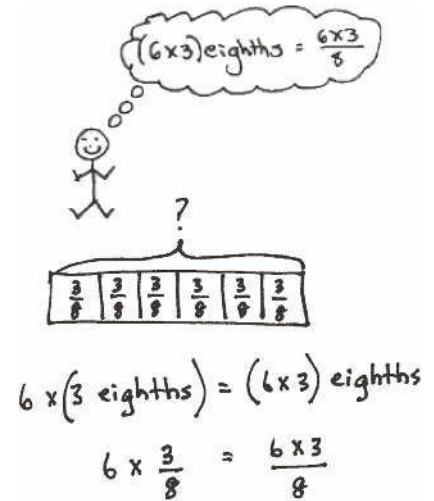 (6x3) eighths = 6x3/8
?
3/8 3/8 3/8 3/8 3/8 3/8
6 x (3 eighths) = (6x3) eighths
6 x 3/8 = 6x3/8